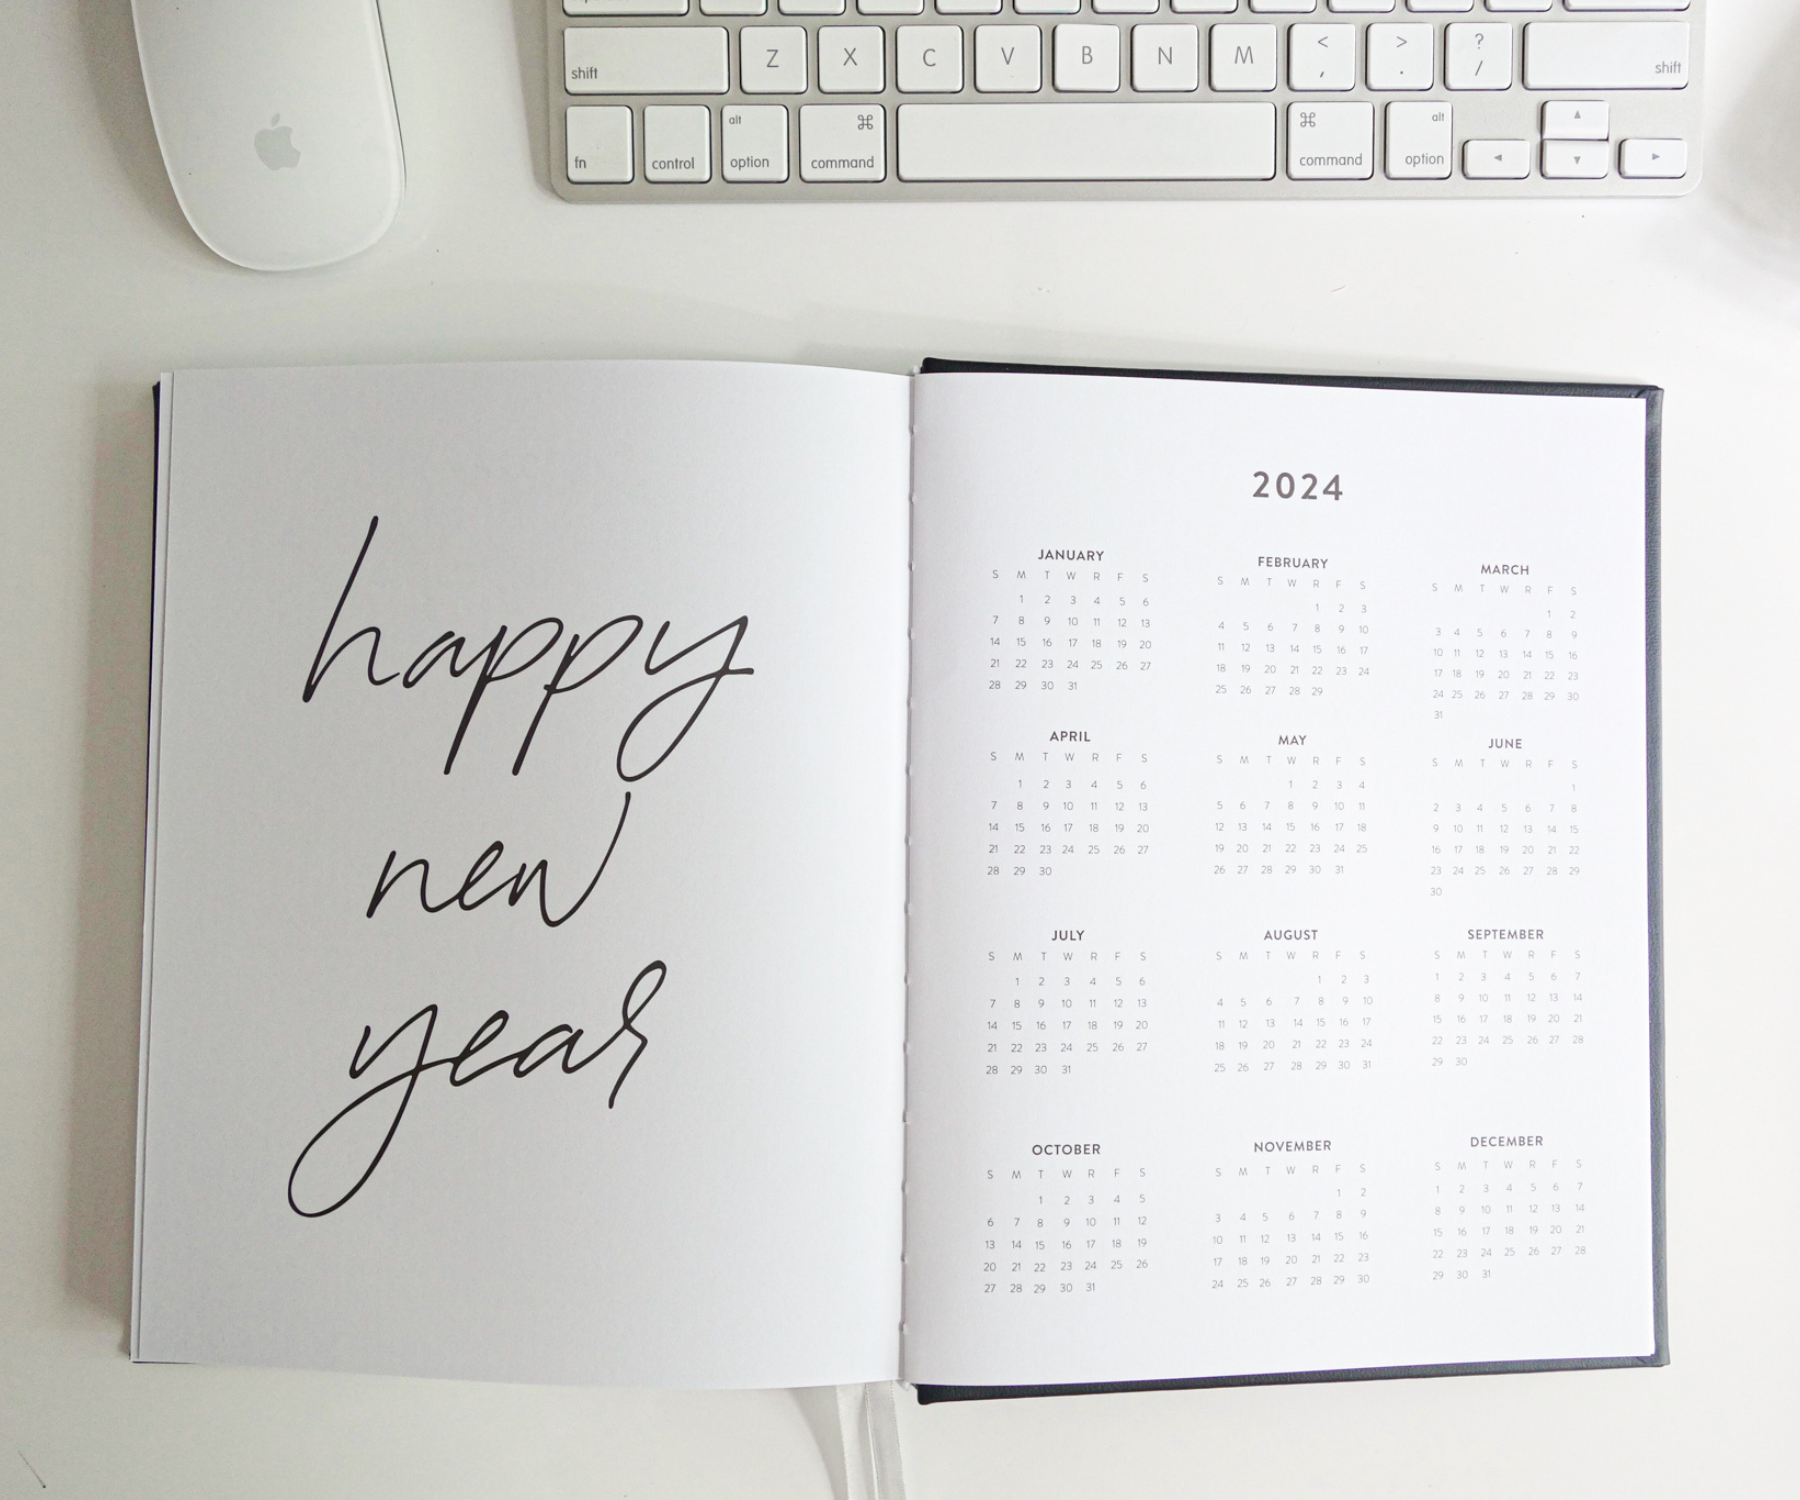 shift Z X C V B N M < , > . ? / shift
fn control alt option ⌘ command ⌘ command alt option
happy
new
year
2024
JANUARY
S M T W R F S
1 2 3 4 5 6
7 8 9 10 11 12 13
14 15 16 17 18 19 20
21 22 23 24 25 26 27
28 29 30 31
FEBRUARY
S M T W R F S
1 2 3
4 5 6 7 8 9 10
11 12 13 14 15 16 17
18 19 20 21 22 23 24
25 26 27 28 29
MARCH
S M T W R F S
1 2
3 4 5 6 7 8 9
10 11 12 13 14 15 16
17 18 19 20 21 22 23
24 25 26 27 28 29 30
31
APRIL
S M T W R F S
1 2 3 4 5 6
7 8 9 10 11 12 13
14 15 16 17 18 19 20
21 22 23 24 25 26 27
28 29 30
MAY
S M T W R F S
1 2 3 4
5 6 7 8 9 10 11
12 13 14 15 16 17 18
19 20 21 22 23 24 25
26 27 28 29 30 31
JUNE
S M T W R F S
1
2 3 4 5 6 7 8
9 10 11 12 13 14 15
16 17 18 19 20 21 22
23 24 25 26 27 28 29
30
JULY
S M T W R F S
1 2 3 4 5 6
7 8 9 10 11 12 13
14 15 16 17 18 19 20
21 22 23 24 25 26 27
28 29 30 31
AUGUST
S M T W R F S
1 2 3
4 5 6 7 8 9 10
11 12 13 14 15 16 17
18 19 20 21 22 23 24
25 26 27 28 29 30 31
SEPTEMBER
S M T W R F S
1 2 3 4 5 6 7
8 9 10 11 12 13 14
15 16 17 18 19 20 21
22 23 24 25 26 27 28
29 30
OCTOBER
S M T W R F S
1 2 3 4 5
6 7 8 9 10 11 12
13 14 15 16 17 18 19
20 21 22 23 24 25 26
27 28 29 30 31
NOVEMBER
S M T W R F S
1 2
3 4 5 6 7 8 9
10 11 12 13 14 15 16
17 18 19 20 21 22 23
24 25 26 27 28 29 30
DECEMBER
S M T W R F S
1 2 3 4 5 6 7
8 9 10 11 12 13 14
15 16 17 18 19 20 21
22 23 24 25 26 27 28
29 30 31